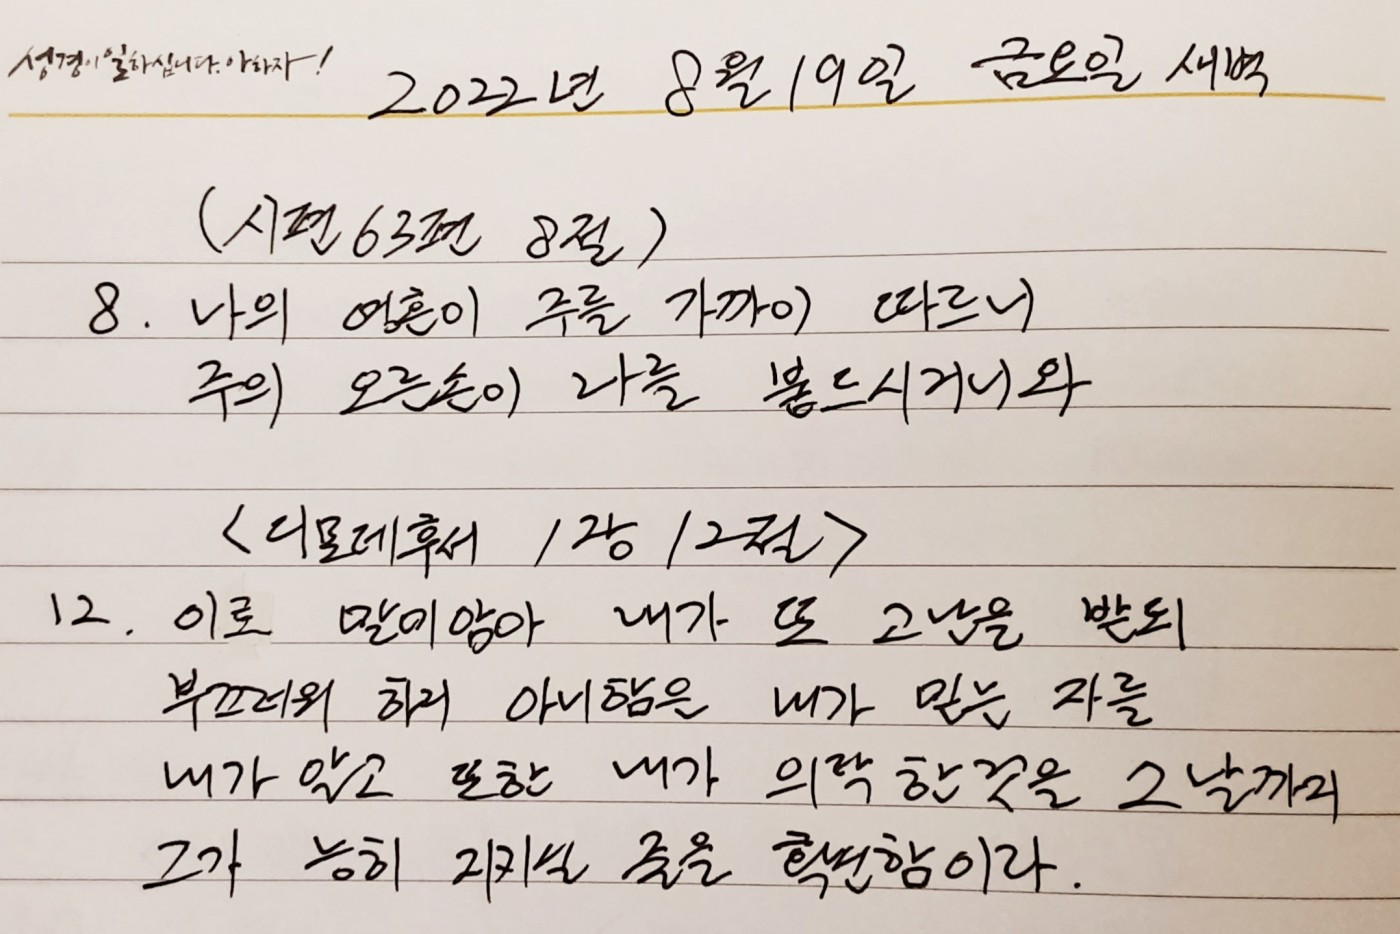 성경이 일하십니다. 아하자!
2022년 8월 19일 금요일 새벽
(시편 63편 8절)
8. 나의 영혼이 주를 가까이 따르니
주의 오른손이 나를 붙드시거니와
<디모데후서 1장 12절>
12. 이로 말미암아 내가 또 고난을 받되
부끄러워 하지 아니함은 내가 믿는 자를
내가 알고 또한 내가 의탁한것을 그 날까지
그가 능히 지키실 줄을 확신함이라.